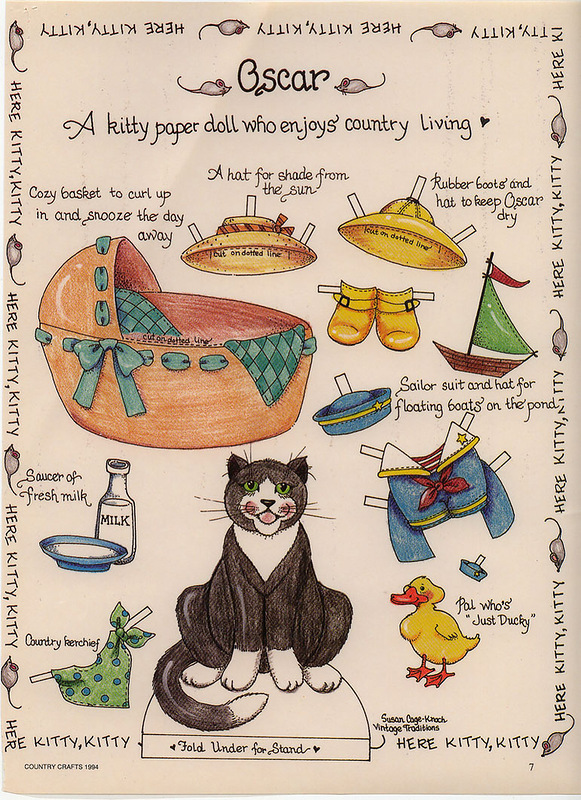 HERE KITTY, KITTY
HERE KITTY, KITTY
HERE KITTY, KITTY
HERE KI
Oscar
A kitty paper doll who enjoys country living
Cozy basket to curl up
in and snooze the day
away
A hat for shade from
the sun
cut on dotted line
Rubber boots and
hat to keep Oscar
dry
cut on dotted line
cut on dotted line
Sailor suit and hat for
floating boats on the pond
Saucer of
fresh milk
MILK
Country kerchief
Pal who's
"Just Ducky"
Susan Cage-Knoch
Vintage Traditions
Fold Under for Stand
HERE KITTY, KITTY
HERE KITTY, KITTY
HERE KITTY, KITTY
HERE KITTY, KITTY
HERE KITTY, KITTY
HERE KITTY, KITTY
HERE KITTY, KITTY
HERE KITTY, KITTY
HERE KITTY, KITTY
COUNTRY CRAFTS 1994
7